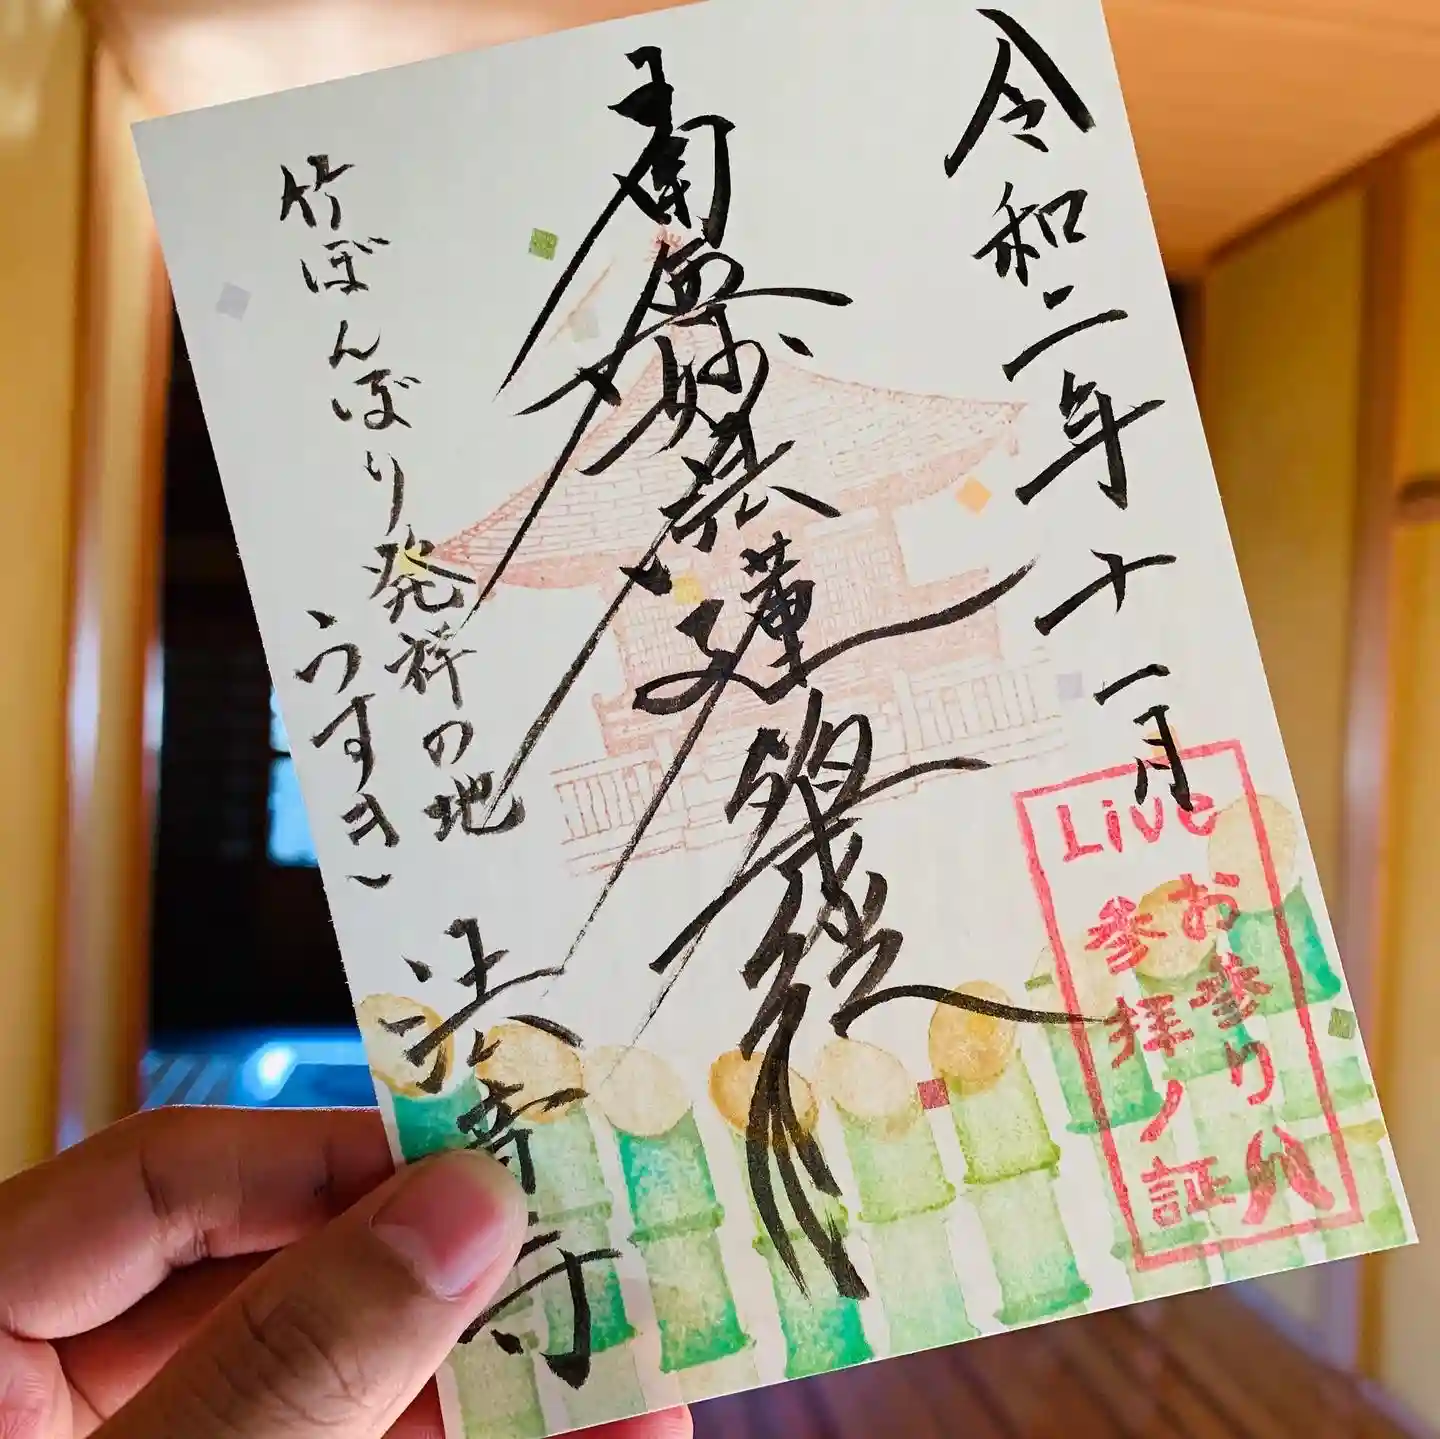 令和二年十一月
Live
お参り
参拝ノ証
南無妙法蓮華経
竹ぼんぼり発祥の地
うすき~
法音寺